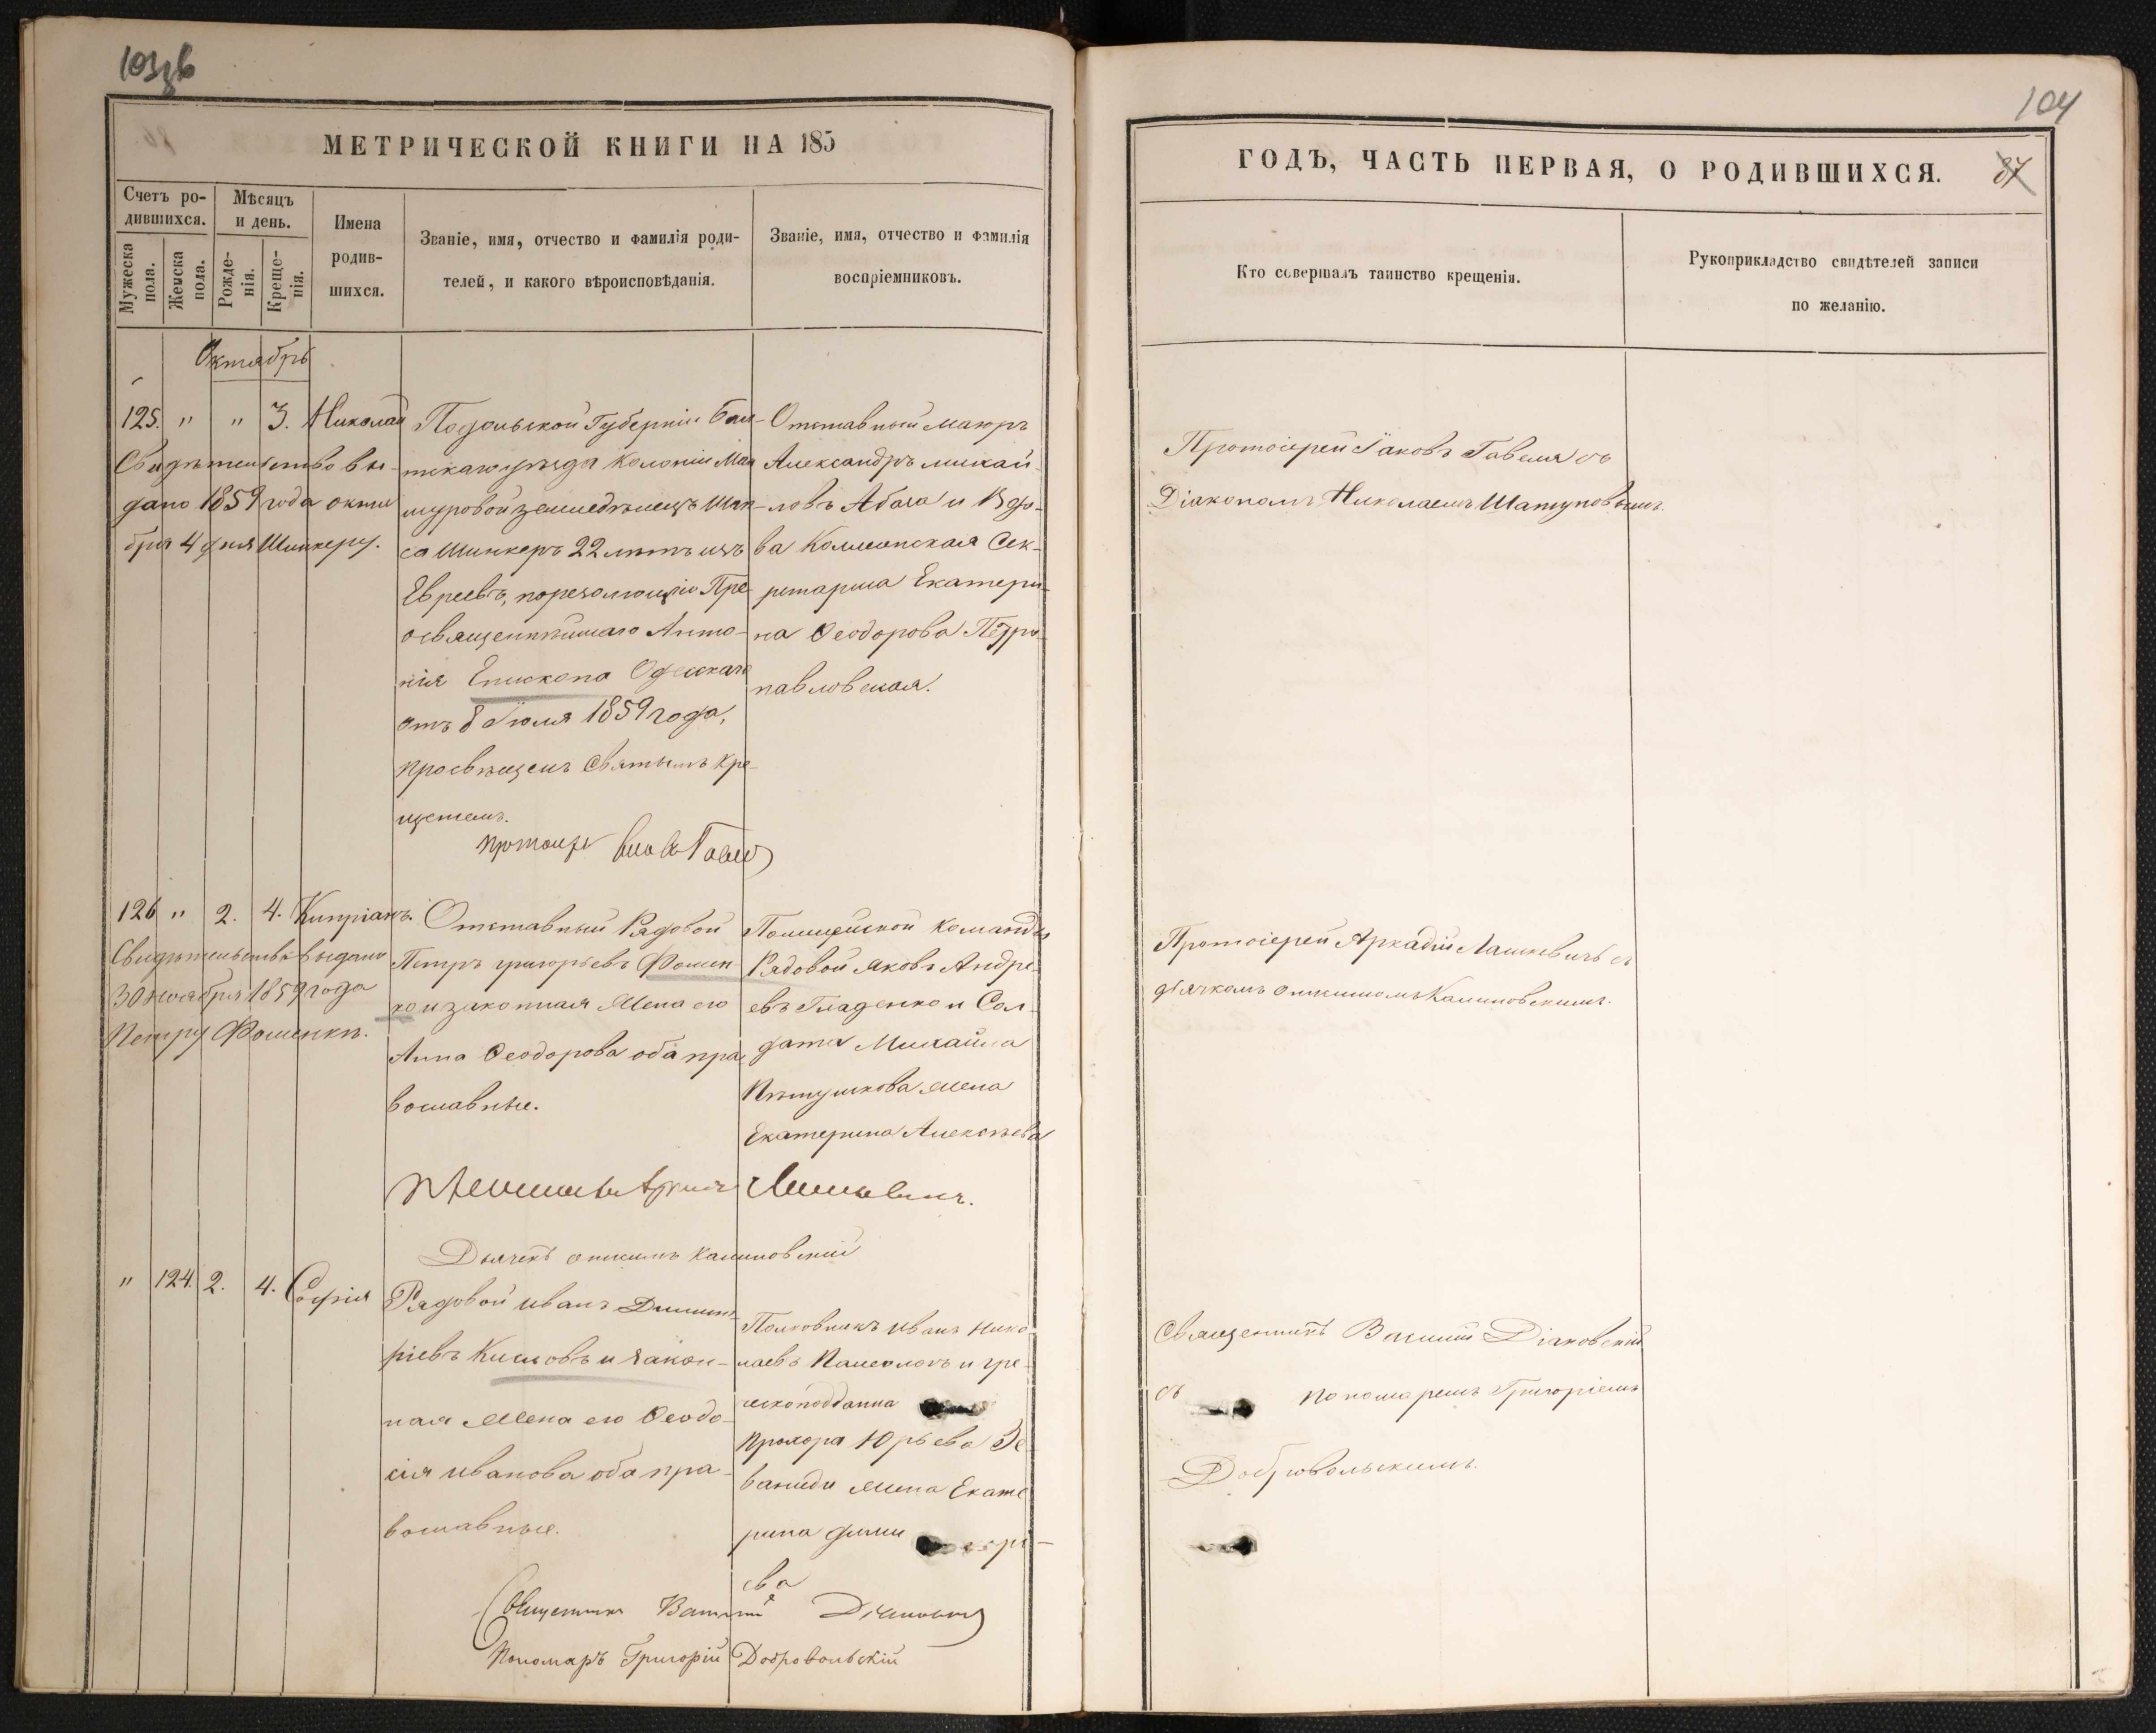 103об
МЕТРИЧЕСКОЙ КНИГИ НА 185
Счетъ ро-
дившихся.
Мужеска
пола.
Женска
пола.
Мѣсяцъ
и день.
Рожде-
нія.
Креще-
нія.
Имена
родив-
шихся.
Званіе, имя, отчество и фамилія роди-
телей, и какого вѣроисповѣданія.
Званіе, имя, отчество и фамилія
воспріемниковъ.
Октябрь
125. " " 3. Николай
Свидѣтельство вы-
дано 1859 года октя
бря 4 дня Шинкеру.
Подольской Губерніи Бал-
тскаго уѣзда Колоніи Ман
туровой земледѣлецъ
Шинкеръ 22 лѣтъ изъ
Евреевъ, по резолюціи Пре
освященнѣйшаго Анто-
нія Епископа Одесскаго
отъ 8 Іюля 1859 года,
просвѣщенъ Святымъ Кре-
щетемъ.
Отставный маіоръ
Александръ михай-
ловъ Абаза и Вдо-
ва Коллежская Сек-
ретарша Екатери-
на Ѳеодорова Петро-
павловская.
126 " 2. 4. Кипріанъ.
Свидѣтельство выдано
30 ноября 1859 года
Петру Фоменкѣ.
Отставный Рядовой
Петръ григорьевъ Фомен-
ко и законная Жена его
Анна Ѳеодорова оба пра
вославные.
Полицейской Команды
Рядовой Яковъ Андре-
евъ Гладенко и Сол-
дата Михайла
Пѣтушкова жена
Екатерина Алексѣева
Дьячекъ Калиновскій
" 124. 2. 4. Софія
Рядовой иванъ Димит-
ріевъ Кисловъ и закон-
ная Жена его Ѳеодо-
сія иванова оба пра-
вославные.
Полковникъ иванъ Нико-
лаевъ Палеологъ и гре-
ческоподданна
Прохора Юрьева
жена Екате
рина дими трі-
ева
Священникъ Василій Діаковскій
Пономарь Григорій Добровольскій
104
ГОДЪ, ЧАСТЬ ПЕРВАЯ, О РОДИВШИХСЯ.
87
Кто совершалъ таинство крещенія.
Рукоприкладство свидѣтелей записи
по желанію.
Протоіерей Іаковъ Гавела съ
Діакономъ Николаемъ Шатуновымъ.
Протоіерей Аркадій Лашкевичъ съ
дьячкомъ Калиновскимъ.
Священникъ Василій Діаковскій
съ пономаремъ Григоріемъ
Добровольскимъ.